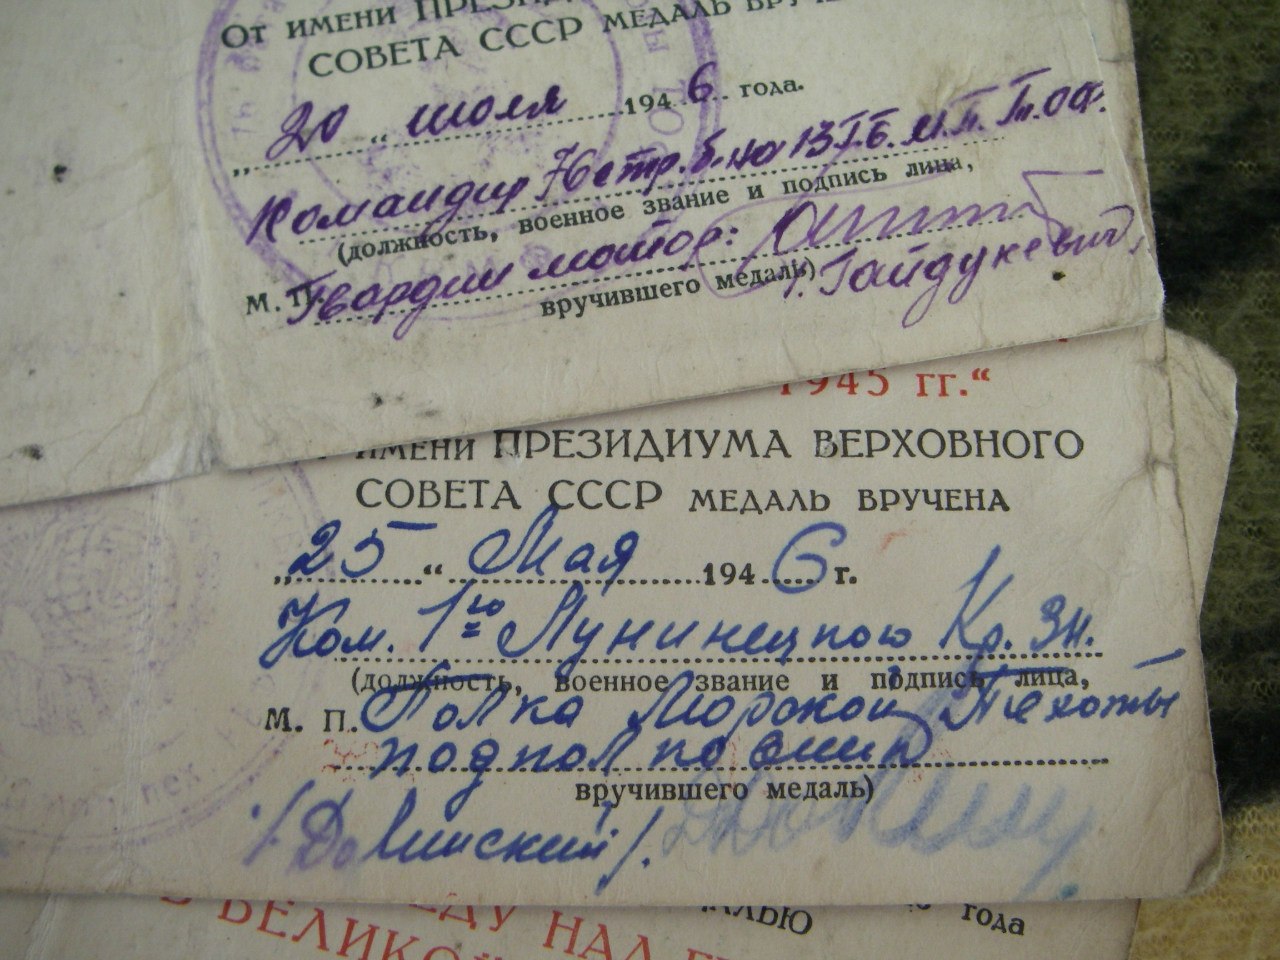 От имени
СОВЕТА СССР МЕДАЛЬ
„20“ июля 1946 года.
Командир 76 стр. б-на 13 Г.Б.М.П. Т.ОФ.
(должность, военное звание и подпись лица,
М. П. Гвардии майор:
вручившего медаль) Гайдукевич
1945 гг.“
ИМЕНИ ПРЕЗИДИУМА ВЕРХОВНОГО
СОВЕТА СССР МЕДАЛЬ ВРУЧЕНА
„25“ Мая 1946 г.
Ком. 1го Лунинецкого Кр. Зн.
(должность, военное звание и подпись лица,
М. П. Полка Морской Пехоты
подполковник
вручившего медаль)
/Довинский/.
НАД
года